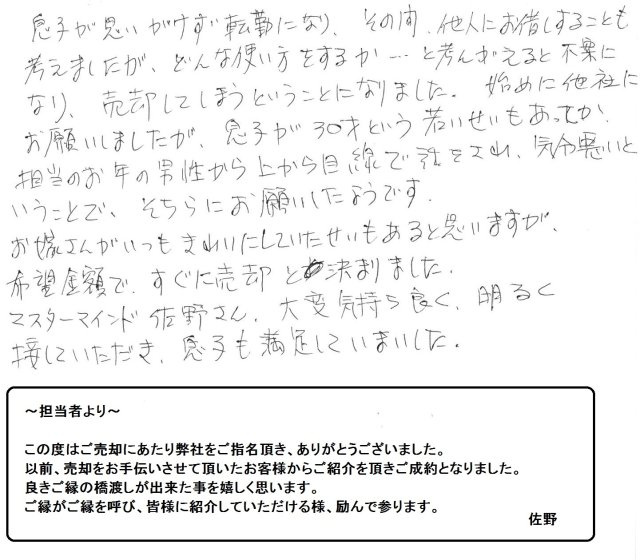 息子が思いがけず転勤になり、その間、他人にお借しすることも
考えましたが、どんな使い方をするか…と考んがえると不案に
なり、売却してしまうということになりました。始めに他社に
お願いしましたが、息子が30才という若いせいもあってか、
担当のお年の男性から上から目線で話をされ、気分悪いと
いうことで、そちらにお願いしたようです。
お嫁さんがいつもきれいにしていたせいもあると思いますが、
希望金額で、すぐに売却と決まりました。
マスターマインド佐野さん、大変気持ち良く、明るく
接していただき、息子も満足していまいした。
～担当者より～
この度はご売却にあたり弊社をご指名頂き、ありがとうございました。
以前、売却をお手伝いさせて頂いたお客様からご紹介を頂きご成約となりました。
良きご縁の橋渡しが出来た事を嬉しく思います。
ご縁がご縁を呼び、皆様に紹介していただける様、励んで参ります。
佐野